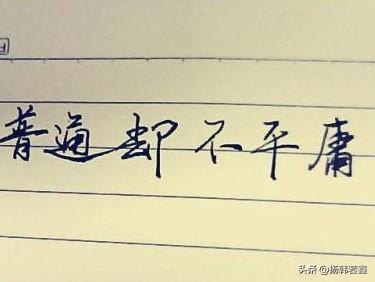 普通却不平庸
头条 @杨韩若鑫